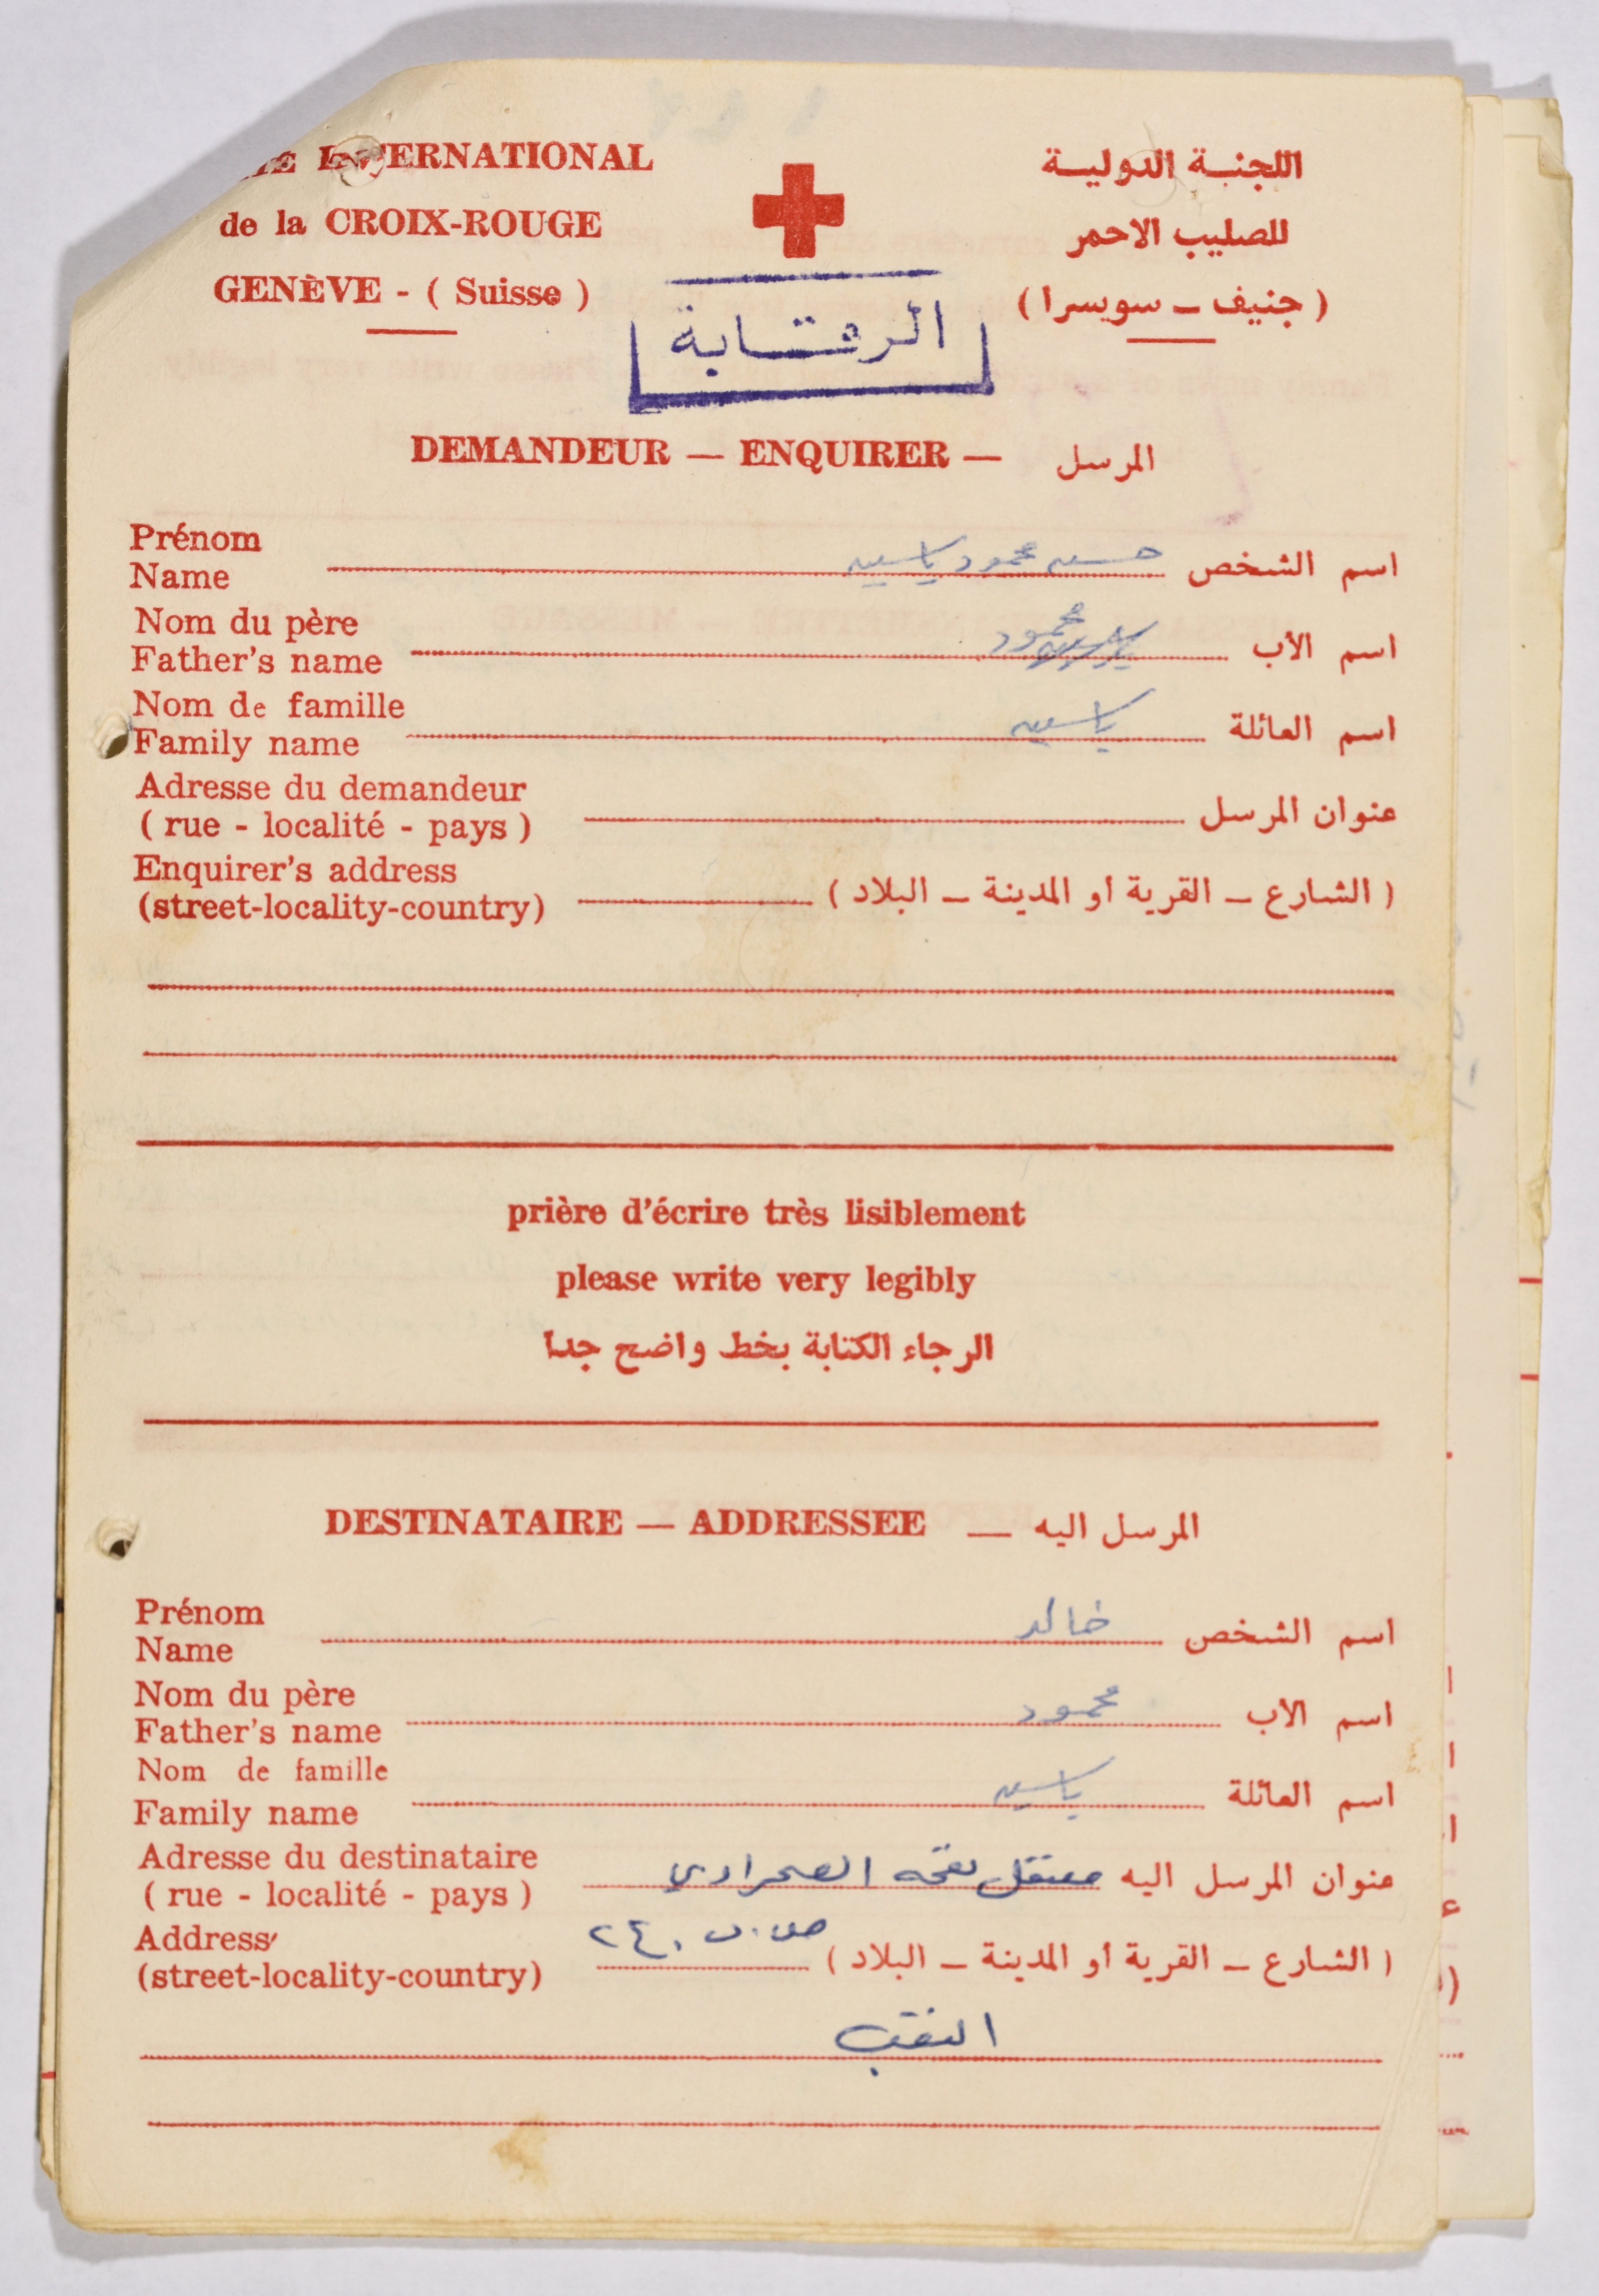 INTERNATIONAL
de la CROIX-ROUGE
GENÈVE - ( Suisse )
اللجنة الدولية
للصليب الاحمر
( جنيف – سويسرا )
الرقابة
DEMANDEUR — ENQUIRER — المرسل
Prénom
Name
اسم الشخص حسن محمود ياسين
Nom du père
Father's name
اسم الأب محمود
Nom de famille
Family name
اسم العائلة ياسين
Adresse du demandeur
( rue - localité - pays )
عنوان المرسل
Enquirer's address
(street-locality-country)
( الشارع – القرية أو المدينة – البلاد )
prière d'écrire très lisiblement
please write very legibly
الرجاء الكتابة بخط واضح جدا
DESTINATAIRE — ADDRESSEE — المرسل اليه
Prénom
Name
اسم الشخص خالد
Nom du père
Father's name
اسم الأب محمود
Nom de famille
Family name
اسم العائلة ياسين
Adresse du destinataire
( rue - localité - pays )
عنوان المرسل اليه معتقل الصحراوي
Address
(street-locality-country)
( الشارع – القرية أو المدينة – البلاد ) ص.ب ٢٤٠
النقب